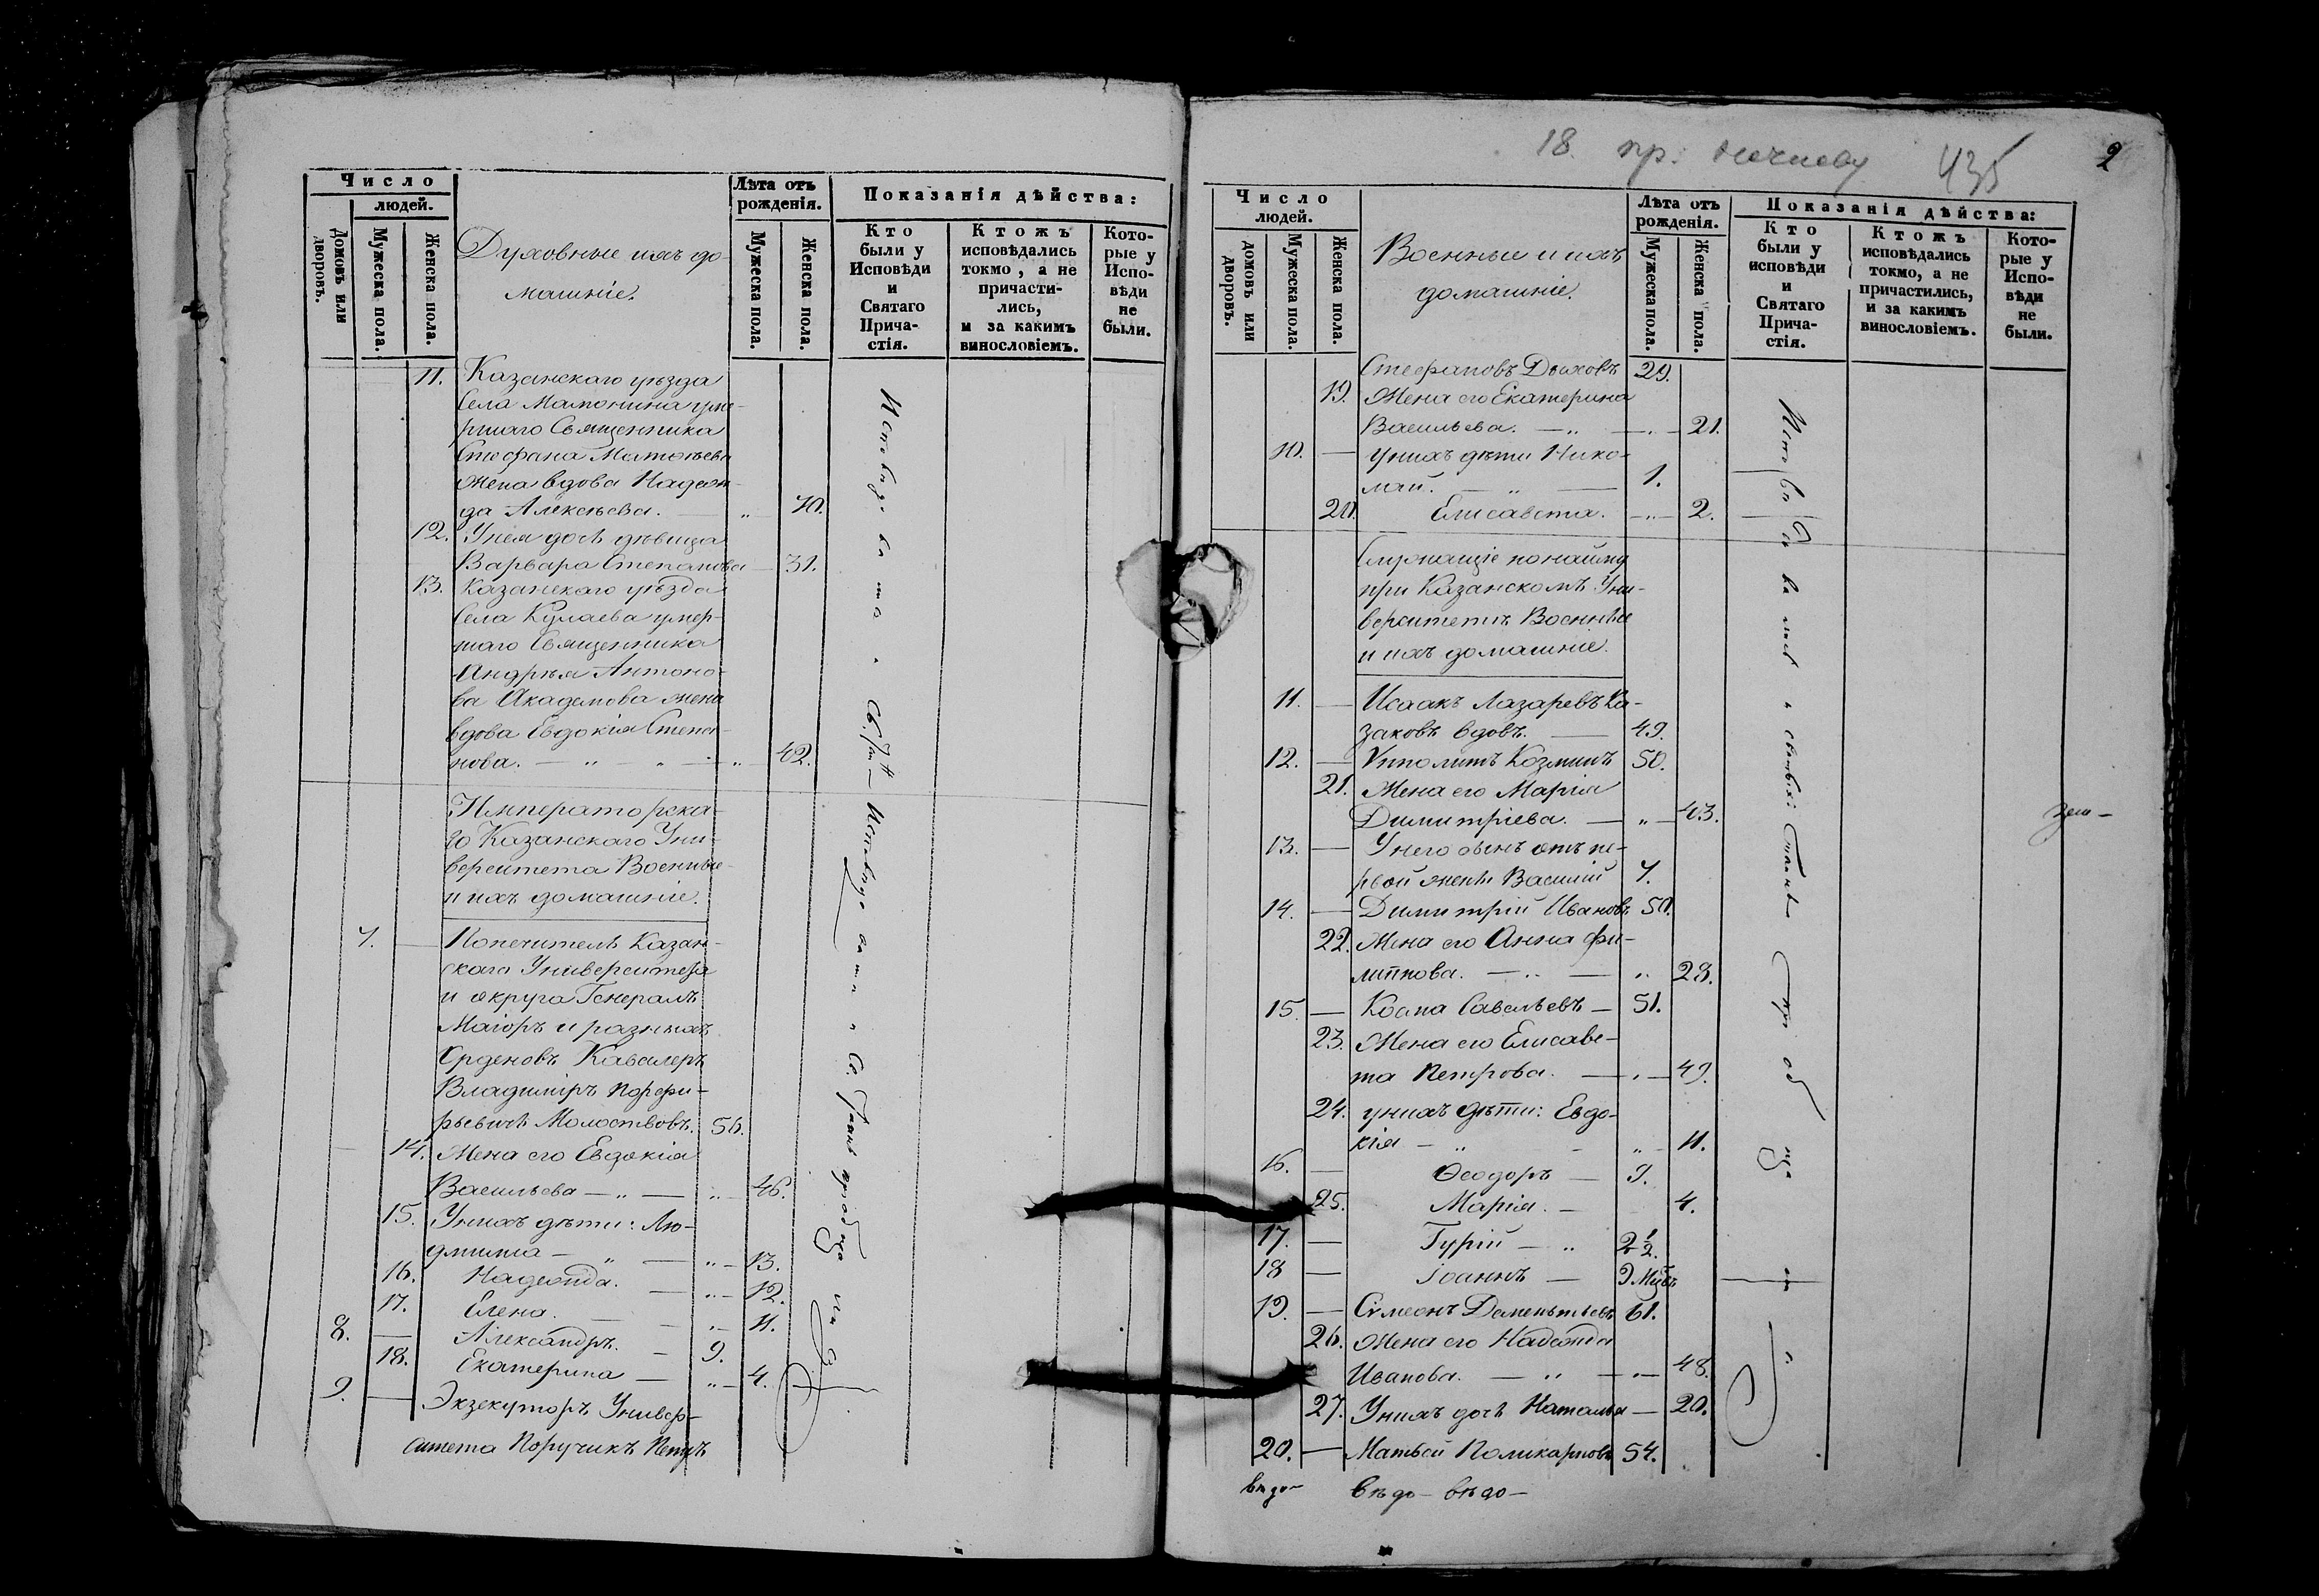 Число
людей.
Домовъ или дворовъ.
Мужеска пола.
Женска пола.
Духовные и ихъ до-
машніе.
Лѣта отъ
рожденія.
Мужеска пола.
Женска пола.
Показанія дѣйства:
Кто
были у
Исповѣди
и
Святаго
Прича-
стія.
Ктожъ
исповѣдались
токмо, а не
причасти-
лись,
и за какимъ
винословіемъ.
Кото-
рые у
Испо-
вѣди
не
были.
11. Казанскаго уѣзда
села Мамонина уме-
ршаго Священника
Стефана Матвѣева
жена вдова Надеж-
да Алексѣева. — „ 70.
12. У нея дочь дѣвица
Варвара Степанова — 31.
13. Казанскаго уѣзда
села Кулаева умер-
шаго Священника
Андрея Антоно-
ва Академова жена
вдова Евдокія Степа-
нова. — „ — „ — „ — 42.
Императорска-
го Казанскаго Уни-
верситета Военные
и ихъ домашніе.
7. — Попечитель Казан-
скаго Университета
и округа Генералъ
Маіоръ и разныхъ
Орденовъ Кавалеръ
Владиміръ Порфи-
рьевичъ Молоствовъ. 56.
14. Жена его Евдокія
Васильева — „ — „ — 46.
15. У нихъ дѣти: Лю-
дмила — „ — „ — 13.
16. Надежда. — „ — 12.
17. Елена. — „ — 11.
8. — Александръ. — 9.
18. Екатерина — „ — 4.
9. — Экзекуторъ Универ-
ситета Поручикъ Петръ
18. пр.
435
2
Число
людей.
домовъ или дворовъ.
Мужеска пола.
Женска пола.
Военные и ихъ
домашніе.
Лѣта отъ
рожденія.
Мужеска пола.
Женска пола.
Показанія дѣйства:
Кто
были у
исповѣди
и
Святаго
Прича-
стія.
Ктожъ
исповѣдались
токмо, а не
причастились,
и за какимъ
винословіемъ.
Кото-
рые у
Испо-
вѣди
не
были.
Стефановъ 29.
19. Жена его Екатерина
Васильева. — „ — „ — 21.
10. — у нихъ дѣти Нико-
лай. — „ — 1.
20. Елисавета. — „ — 2.
Служащіе по найму
при Казанскомъ Уни-
верситетѣ Военные
и ихъ домашніе.
11. — Исаакъ Лазаревъ Ка-
заковъ вдовъ. — 49.
12. — Ипполитъ Козминъ 50.
21. Жена его Марія
Димитріева. — „ — 43.
13. — У него сынъ отъ пе-
рвой жены Василій 7.
14. — Димитрій Ивановъ 50.
22. Жена его Анна Фи-
липпова. — „ — „ 28.
15. — Косма Савельевъ — 51.
23. Жена его Елисаве-
та Петрова. — „ — 49.
24. у нихъ дѣти: Евдо-
кія — „ — „ — 11.
16. — Ѳеодоръ — 9.
25. Марія. — 4.
17. — Гурій — „ 2 1/2.
18 — Іоаннъ — 9 Мцвъ
19. — Сѵмеонъ Дементьевъ 61.
26. Жена его Надежда
Иванова. — „ — „ — 48.
27. У нихъ дочь Наталья — 20.
20. — Матвей Поликарповъ 54.
вѣдо- вѣдо- вѣдо-